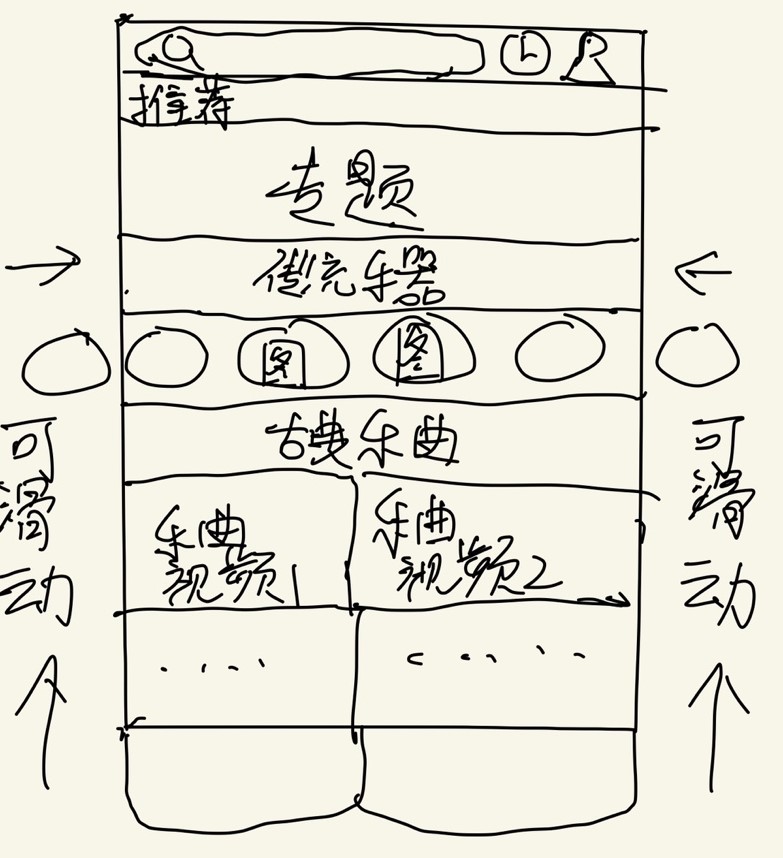 推荐
专题
传统乐器
图 图
古典乐曲
乐曲 乐曲
视频1 视频2
可滑动 可滑动